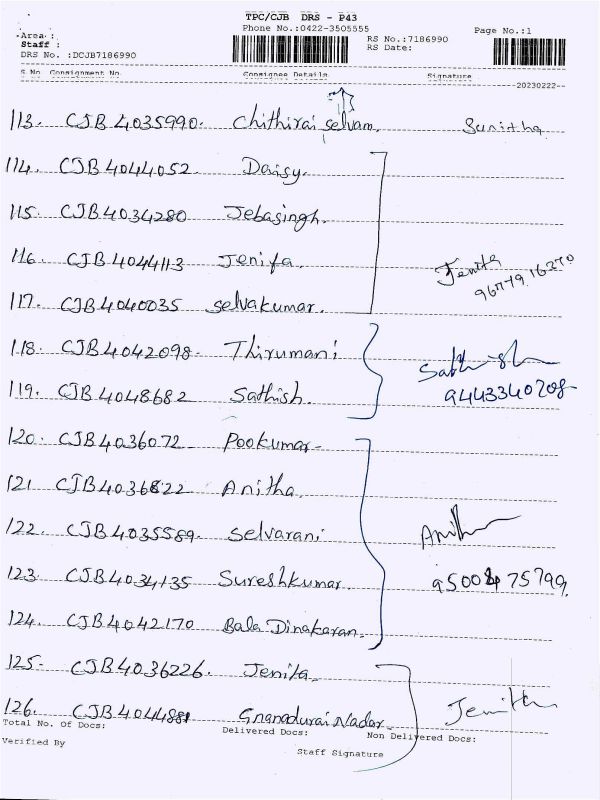 TPC/CJB DRS - P43
Phone No.:0422-3505555
Area :
Staff :
DRS No. :DCJB7186990
RS No.:7186990
RS Date:
Page No.:1
S.No Consignment No. Consignee Details Signature
20230222--
113. CJB 4035990. Chithirai selvam. Sunitha
114. CJB 4044052. Daisy.
115. CJB 4034280 Jebasingh.
116. CJB 4044113 Jenifa. Jenita
9677916370
117. CJB 4040035 selvakumar.
118. CJB 4042098. Thirumani Sathish
119. CJB 4048682 Sathish. 9443340208
120. CJB 4036072 Pookumar
121 CJB 4036822 Anitha
122. CJB 4035589. Selvarani Anitha
123. CJB 4034135 Sureshkumar 9500475799
124. CJB 4042170 Bala Dinakaran.
125- CJB 4036226. Jenita.
126. CJB 4044881 Gnanadurai Nadar. Jenitha
Total No. Of Docs: Delivered Docs: Non Delivered Docs:
Verified By Staff Signature